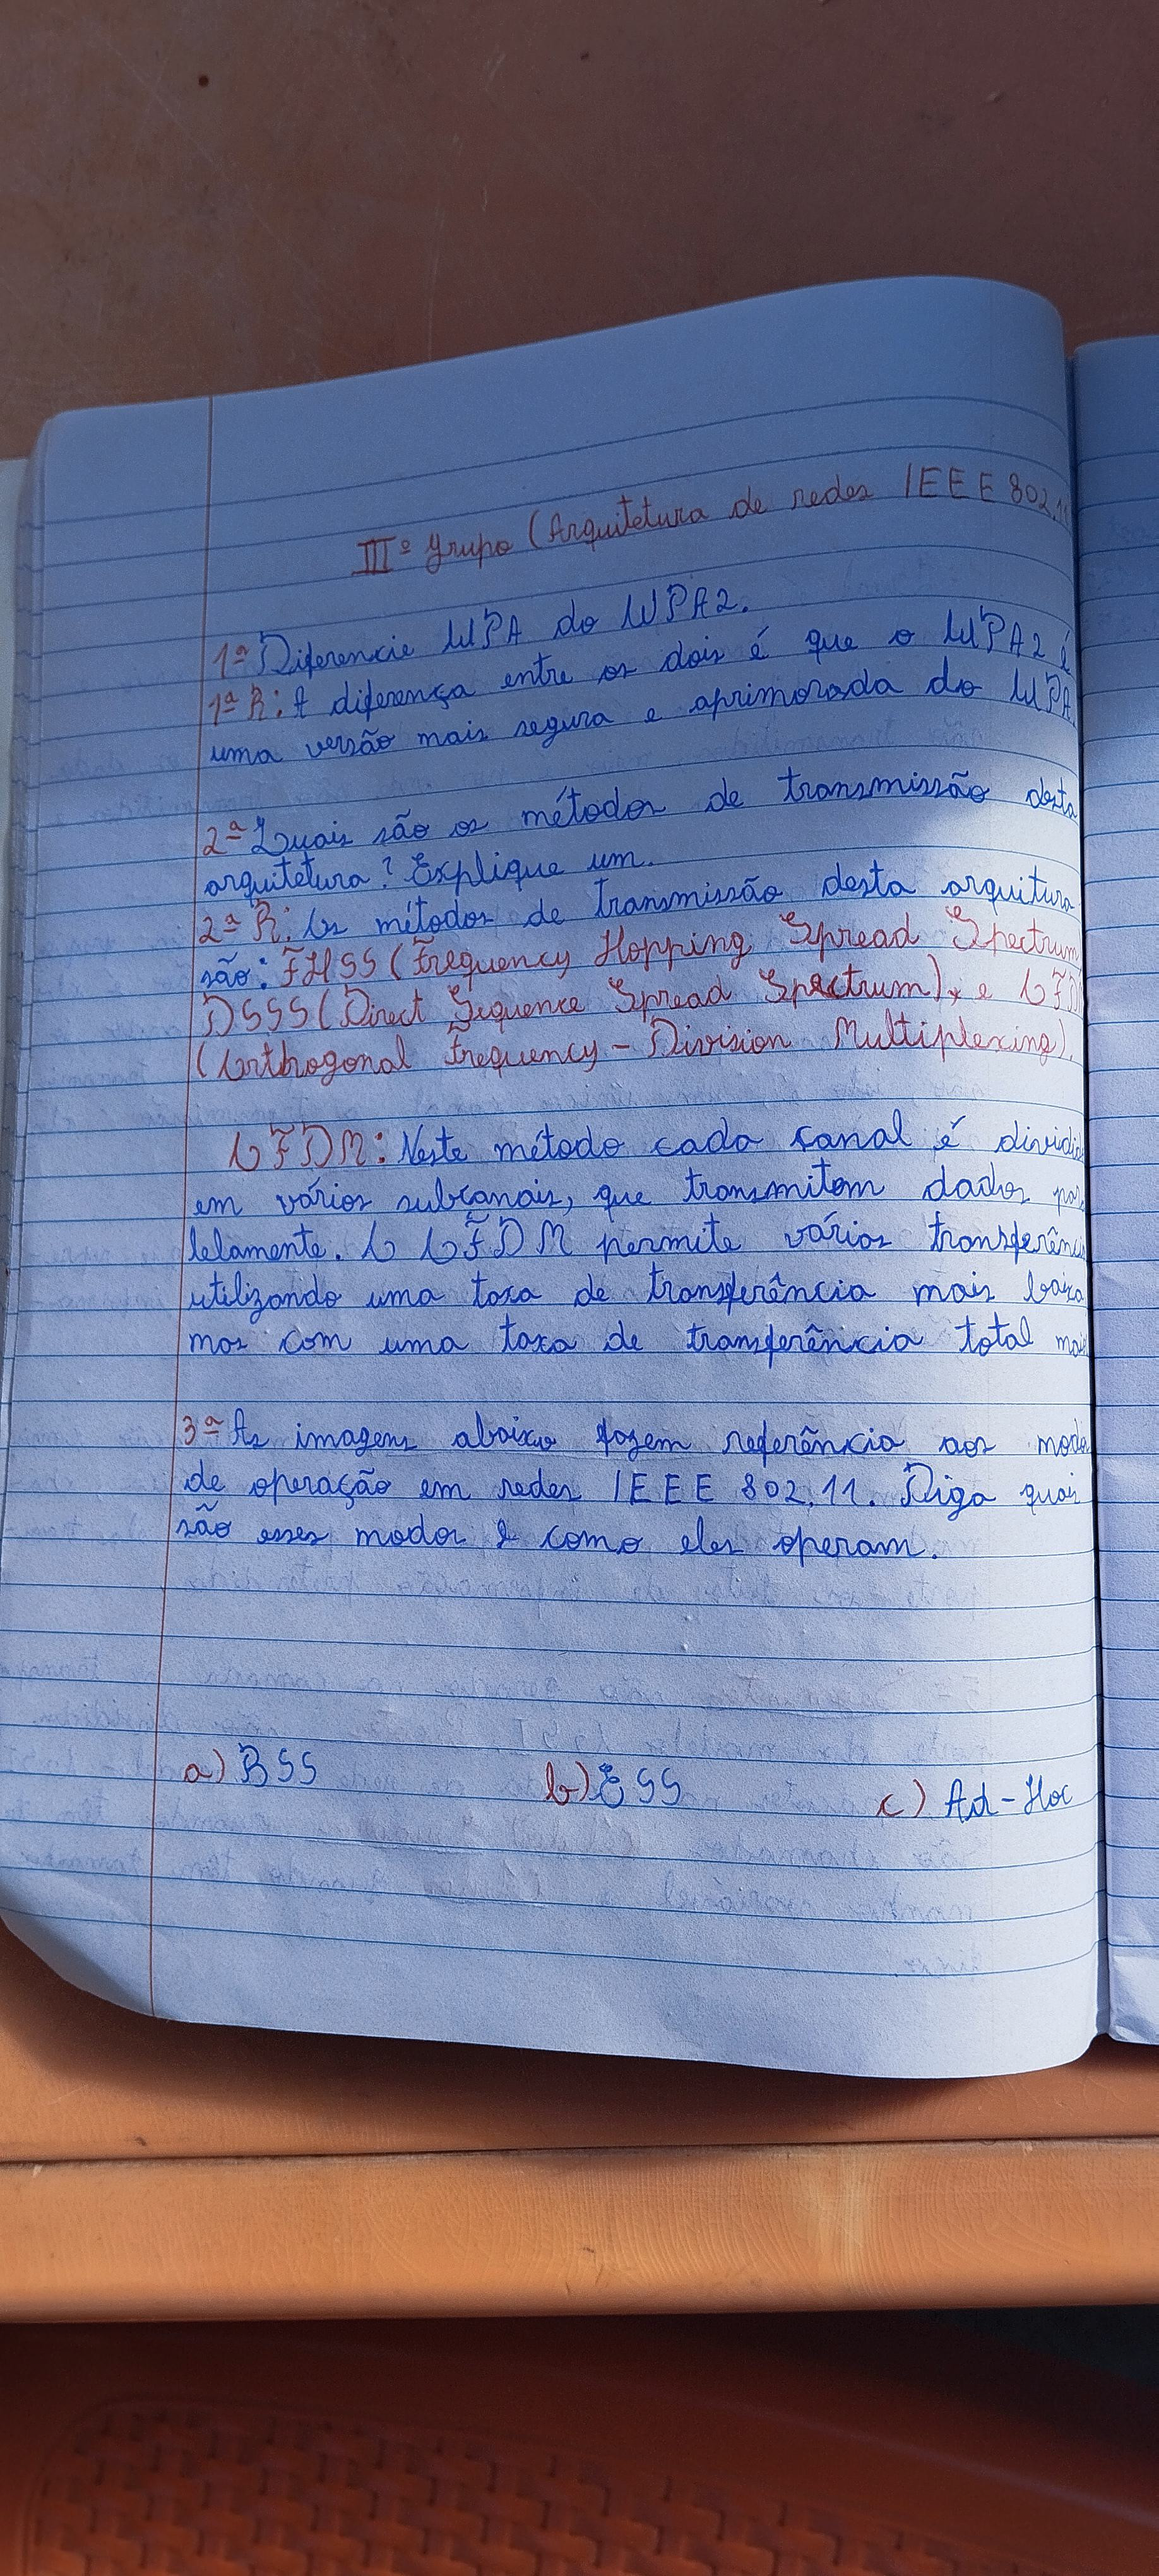 IIIº Grupo (Arquitetura de redes IEEE 802.11
1ª Diferencie WPA do WPA2.
1ª R: A diferença entre os dois é que o WPA2 é
uma versão mais segura e aprimorada do WPA.
2ª Quais são os métodos de transmissão desta
arquitetura? Explique um.
2ª R: Os métodos de transmissão desta arquitura
são: FHSS (Frequency Hopping Spread Spectrum
DSSS (Direct Sequence Spread Spectrum), e OFD
(Orthogonal Frequency-Division Multiplexing).
OFDM: Neste método cada canal é dividid
em vários subcanais, que transmitem dados par
lelamente. O OFDM permite várias transferência
utilizando uma taxa de transferência mais baixa
mas com uma taxa de transferência total mai
3ª As imagens abaixo fazem referência aos modo
de operação em redes IEEE 802.11. Diga quai
são esses modos e como eles operam.
a) BSS b) ESS c) Ad-Hoc